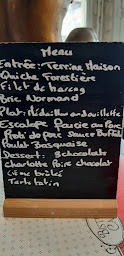 Menu
Entrée: Terrine Maison
Quiche Forestière
Filet de hareng
Brie Normand
Plat: Médaillon andouillette
Escalope Panée au Parc
Roti de porc Sauce
Poulet Basquaise
Dessert: 3chocolats
charlotte Poire chocolat
crème brûlé
Tarte tatin